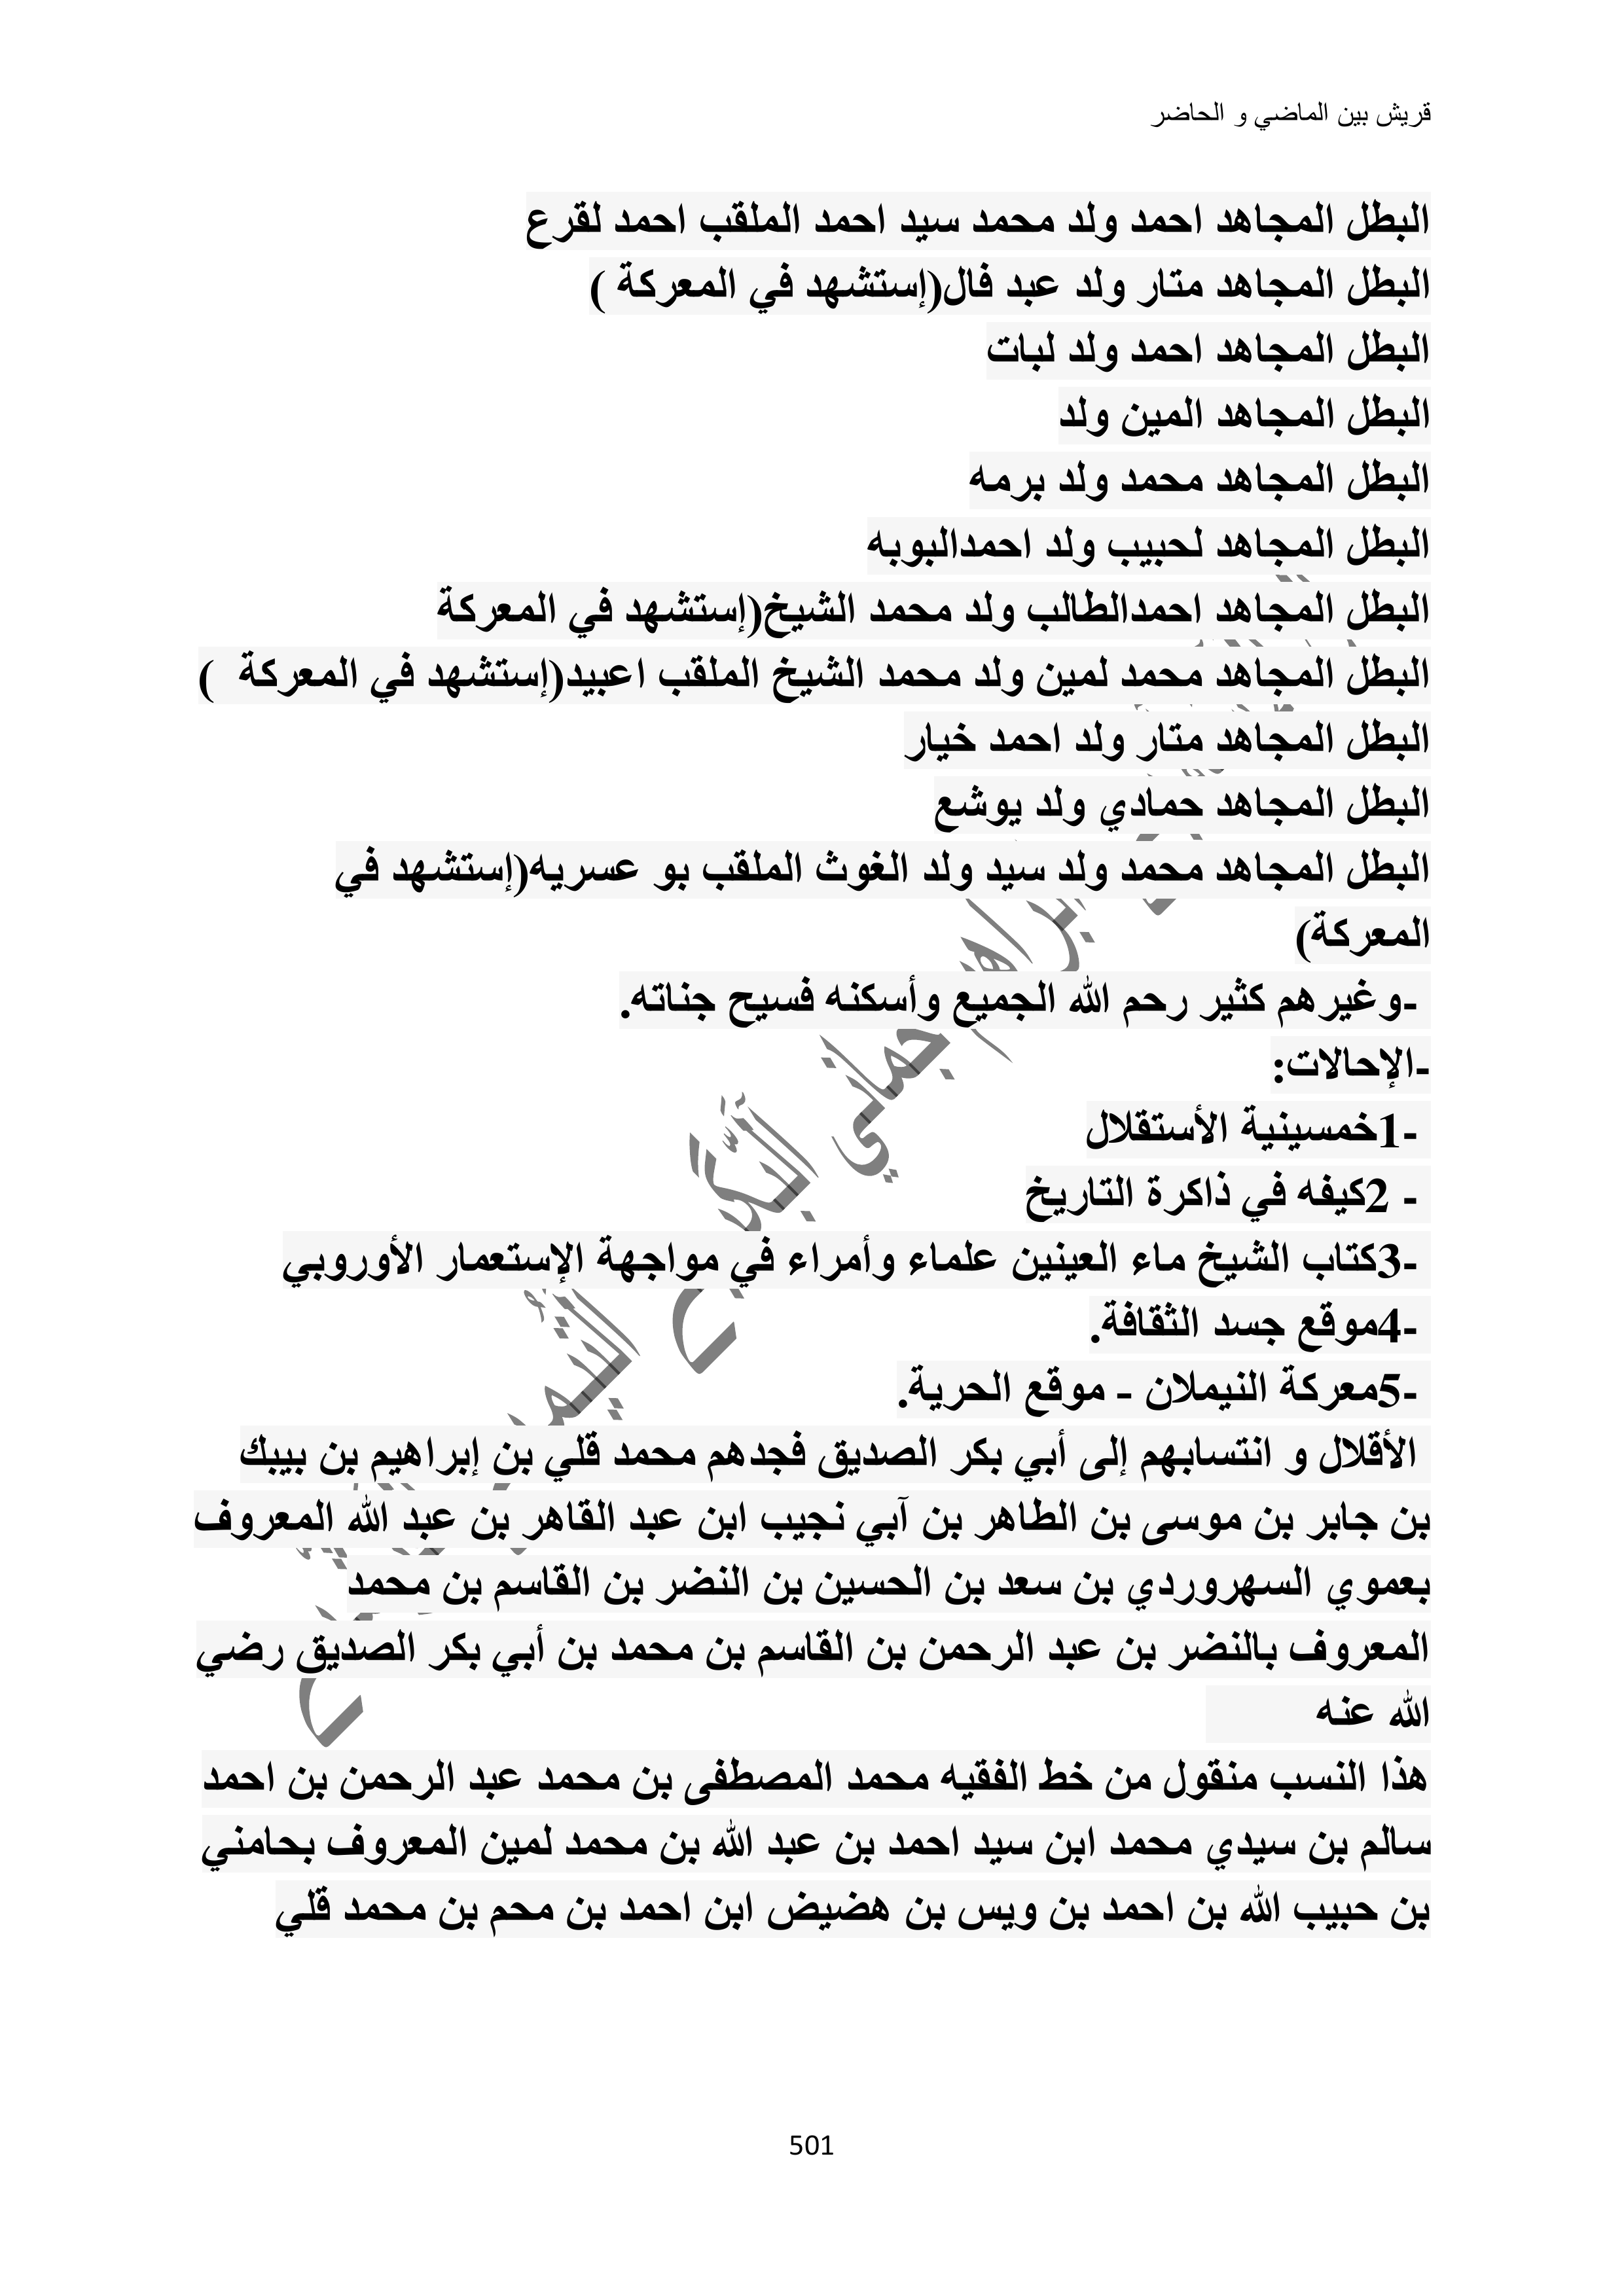 قريش بين الماضي و الحاضر
البطل المجاهد احمد ولد محمد سيد احمد الملقب احمد لقرع
البطل المجاهد متار ولد عبد فال(إستشهد في المعركة )
البطل المجاهد احمد ولد لبات
البطل المجاهد المين ولد
البطل المجاهد محمد ولد برمه
البطل المجاهد لحبيب ولد احمدالبوبه
البطل المجاهد احمدالطالب ولد محمد الشيخ(إستشهد في المعركة
البطل المجاهد محمد لمين ولد محمد الشيخ الملقب اعبيد(إستشهد في المعركة )
البطل المجاهد متار ولد احمد خيار
البطل المجاهد حمادي ولد يوشع
البطل المجاهد محمد ولد سيد ولد الغوث الملقب بو عسريه(إستشهد في
المعركة)
-وغيرهم كثير رحم الله الجميع وأسكنه فسيح جناته.
-الإحالات:
-1خمسينية الأستقلال
- 2كيفه في ذاكرة التاريخ
-3كتاب الشيخ ماء العينين علماء وأمراء في مواجهة الإستعمار الأوروبي
-4موقع جسد الثقافة.
-5معركة النيملان - موقع الحرية.
الأقلال و انتسابهم إلى أبي بكر الصديق فجدهم محمد قلي بن إبراهيم بن بيبك
بن جابر بن موسى بن الطاهر بن آبي نجيب ابن عبد القاهر بن عبد الله المعروف
بعموي السهروردي بن سعد بن الحسين بن النضر بن القاسم بن محمد
المعروف بالنضر بن عبد الرحمن بن القاسم بن محمد بن أبي بكر الصديق رضي
الله عنه
هذا النسب منقول من خط الفقيه محمد المصطفى بن محمد عبد الرحمن بن احمد
سالم بن سيدي محمد ابن سيد احمد بن عبد الله بن محمد لمين المعروف بحامني
بن حبيب الله بن احمد بن ويس بن هضيض ابن احمد بن محم بن محمد قلي
501